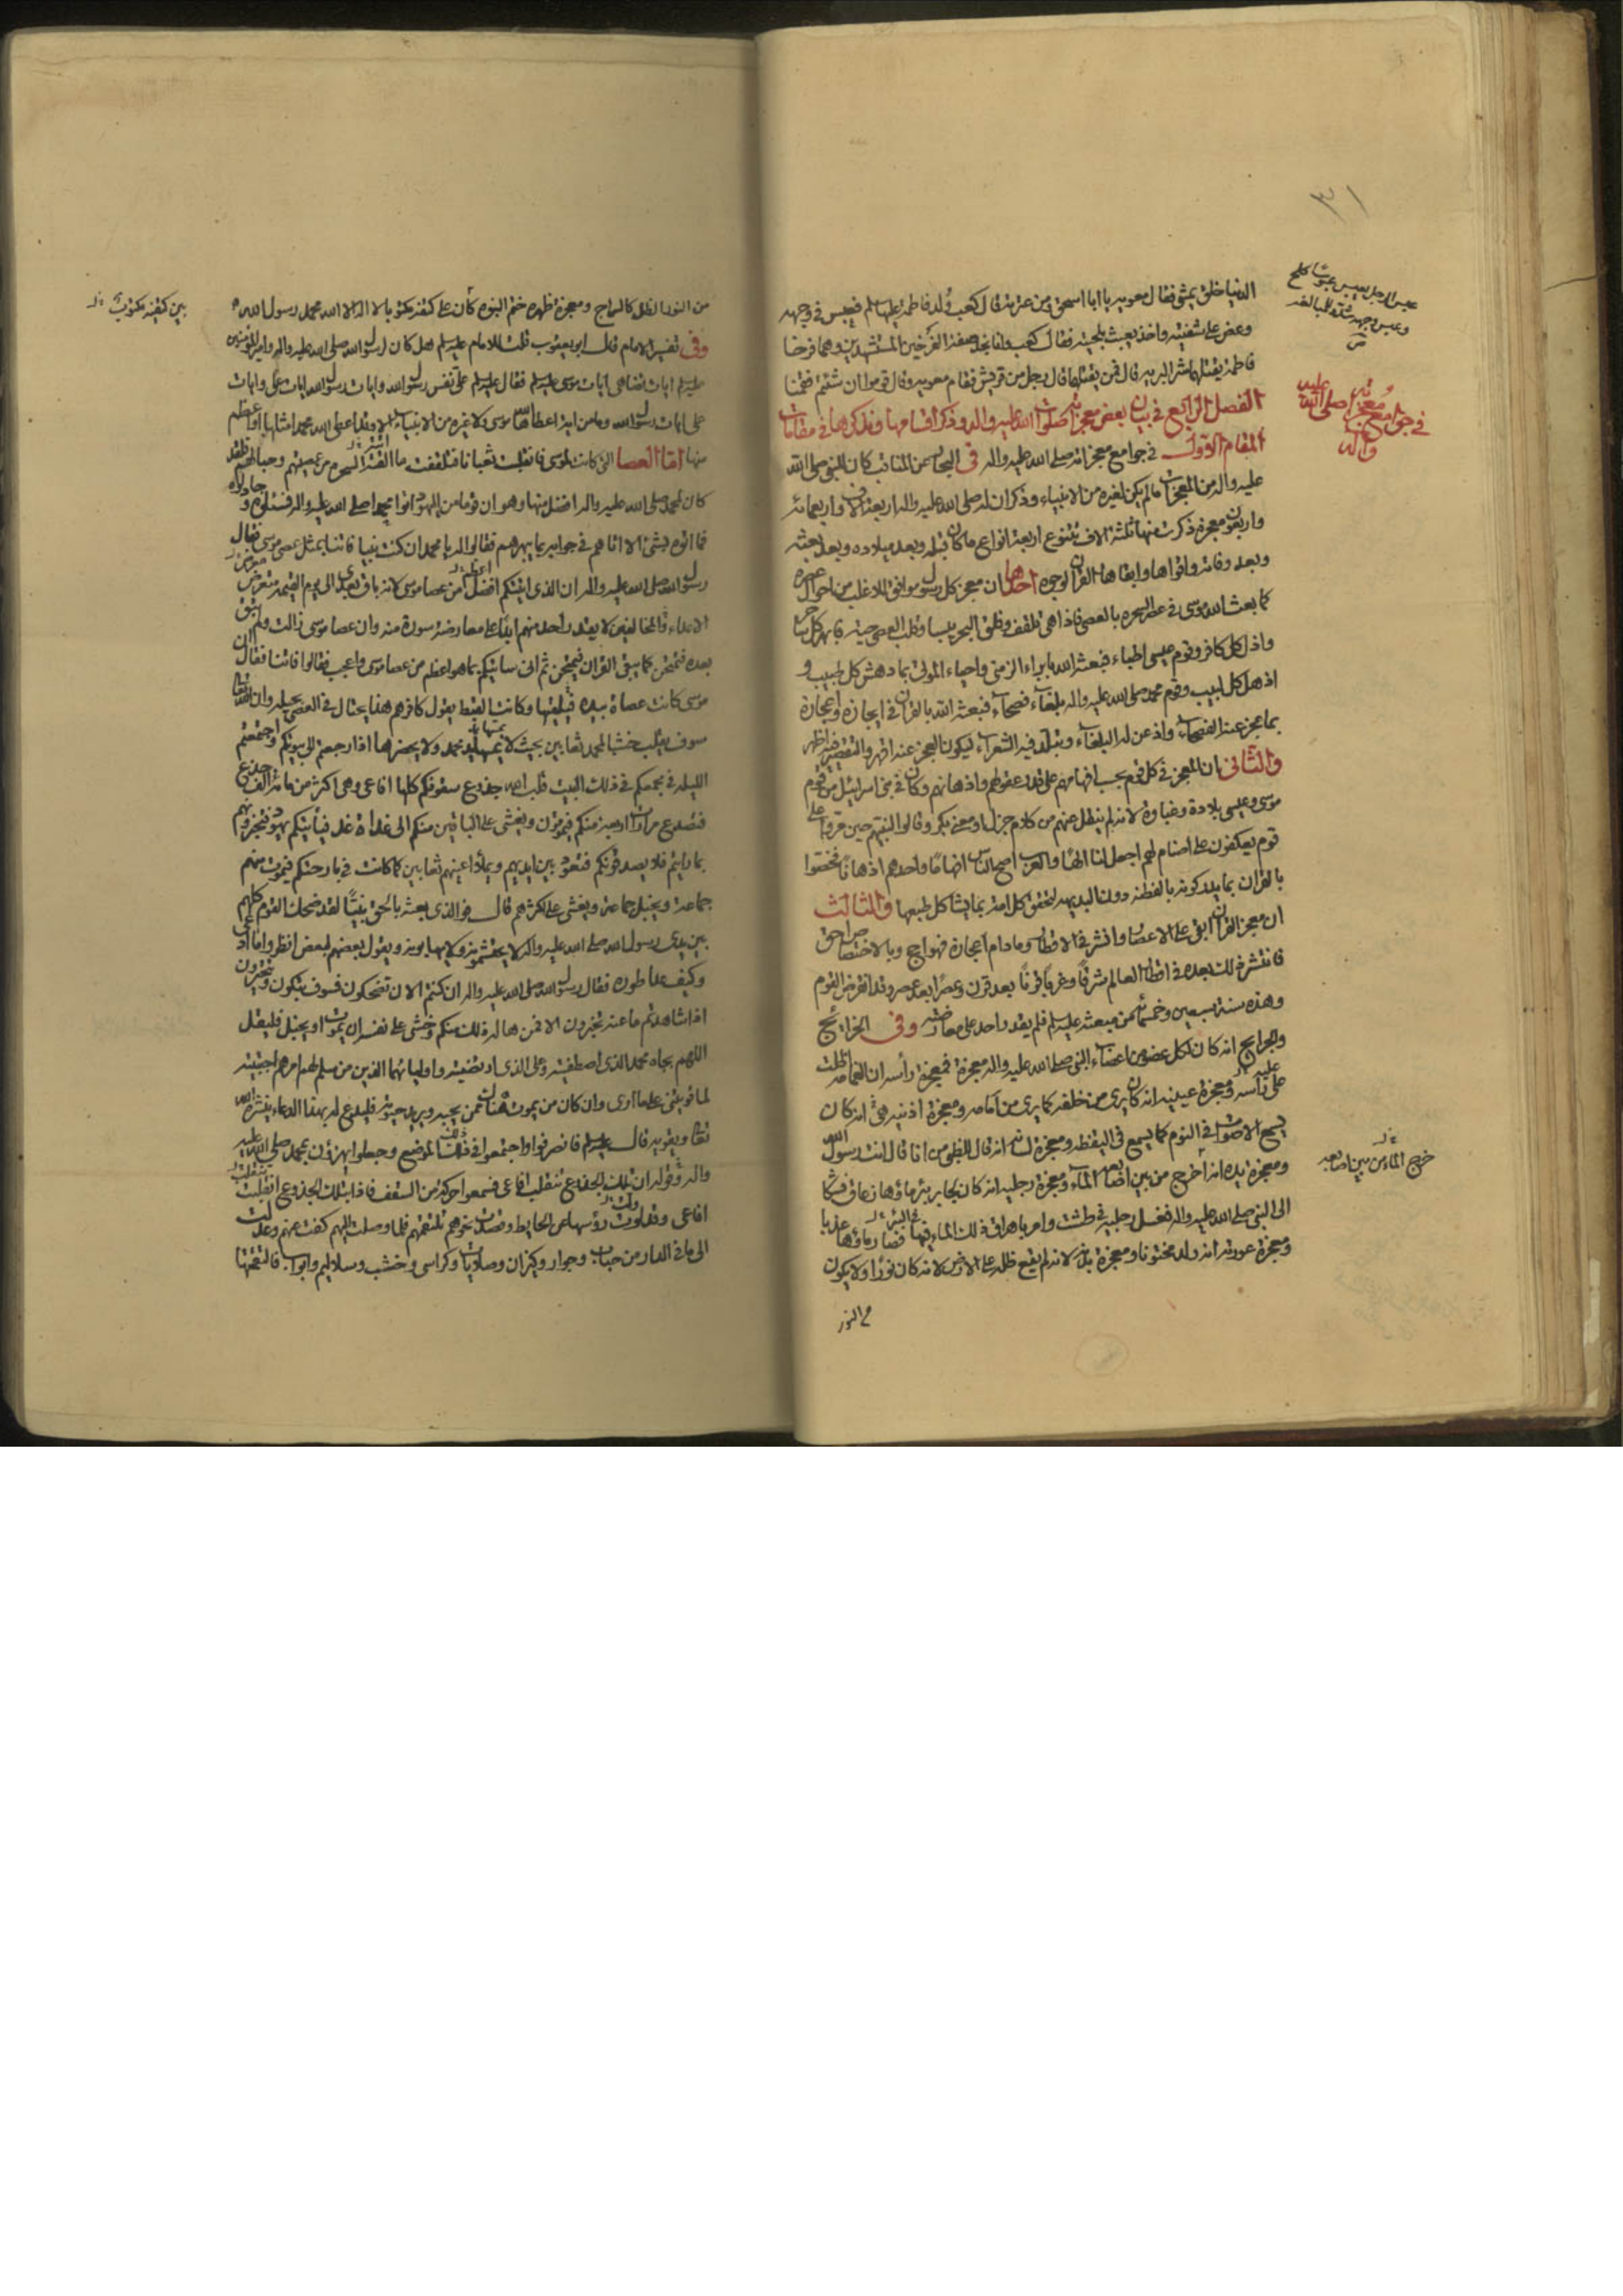 ٣١
الدنيا خلق يمشي فقال معويه يا ابا اسحق ومن عترته قال كعب ولد فاطمة عليها سلم فعبس في وجهه
وعض على شفتيه واخذ يعبث بلحيته فقال كعب وانا نجد صفة الفرخين المستشهدين وهما فرخا
فاطمة يقتلهما شر البريه قال فمن يقتلهما قال رجل من قريش فقام معويه وقال قوموا ان شئتم فقمنا
الفصل الرابع في بيان بعض معجزاته صلوات الله عليه واله وذكر اقسامها ونذكرها في مقامات
المقام الاول في جوامع معجزاته صلى الله عليه واله في البحار عن المناقب كان للنبي صلى الله
عليه واله من المعجزات مالم يكن لغيره من الانبياء وذكر ان له صلى الله عليه واله اربعة الاف واربعمائه
واربعون معجزة ذكرت منها ثلثة الاف تتنوع اربعة انواع ما كان قبله وبعد ميلاده وبعد بعثه
وبعد وفاته واقواها وابقاها القران لوجوه احدها ان معجز كل رسول موافق للاغلب من احوال عصره
كما بعث الله موسى في عصر السحره بالعصى فاذا هي تلقف وفلق البحر يبسا وقلب العصى حية فابهر كل ساحر
واذل كل كافر وقوم عيسى اطباء فبعثه الله بابراء الزمنى واحياء الموتى بما دهش كل طبيب و
اذهل كل لبيب وقوم محمد صلى الله عليه واله بلغاء فصحاء فبعثه الله بالقران في ايجازه واعجازه
بما عجز عنه الفصحاء واذعن له البلغاء وتبلد فيه الشعراء ليكون العجز عنه اقهر والتقصير فيه اظهر
والثاني ان المعجز في كل قوم بحسب افهامهم على قدر عقولهم واذهانهم وكان في بني اسرائيل من قوم
موسى وعيسى بلادة وغباوة لانه لم ينقل عنهم من كلام جزل او معنى بكر وقالوا لنبيهم حين مروا على
قوم يعكفون على اصنام لهم اجعل لنا الها والعرب اصح الناس افهاما واحدهم اذهانا فخصوا
بالقران بما يدركونه بالفطنه دون البديهه لتخص كل امة بما يشاكل طبعها والثالث
ان معجز القران ابقى على الاعصار وانشر في الاقطار وما دام اعجازه فهو احج وبالاختصاص احق
فانتشر ذلك بعده في اقطار العالم شرقا وغربا قرنا بعد قرن وعصرا بعد عصر وقد انقرض القوم
وهذه سنة سبعين وخمسمائة من مبعثه عليه سلم فلم يقدر احد على معارضته وفي الخرايج
والجرايح انه كان لكل عضو من اعضاء النبي صلى الله عليه واله معجزة فمعجزة رأسه ان الغمامة ظلت
على رأسه ومعجزة عينيه انه كان يرى من خلفه كما يرى من امامه ومعجزة اذنيه هي انه كان
يسمع الاصوات في النوم كما يسمع في اليقظه ومعجزة لسانه انه قال للظبي من انا قال انت رسول الله
ومعجزة يده انه اخرج من بين اصابعه الماء ومعجزة رجليه انه كان لجابر بئر ماؤها زعاق فشكا
الى النبي صلى الله عليه واله فغسل رجليه في طشت وامر باهراق ذلك الماء فيها فصار ماؤها عذبا
ومعجزة عورته انه ولد مختونا ومعجزة بدنه لانه لم يقع ظله على الارض لانه كان نورا ولا يكون
من النور
عبس الرجل يعبس عبوسا كلح
وعبس وجهه شدد للمبالغه
في جوامع معجزاته صلى الله عليه واله
خرج الماء من بين اصابعه
من النور الظل كالسراج ومعجزة ظهره ختم النبوه كان على كتفه مكتوبا لا اله الا الله محمد رسول الله
وفي تفسير الامام قال ابو يعقوب قلت للامام عليه سلم هل كان لرسول الله صلى الله عليه واله ولامير المؤمنين
عليه سلم ايات تضاهي ايات موسى عليه سلم فقال عليه سلم علي نفس رسول الله وايات رسول الله ايات علي وايات
علي ايات رسول الله وما من اية اعطاها الله موسى ولا غيره من الانبياء الا وقد اعطى الله محمدا مثلها او اعظم
منها اما العصا التي كانت لموسى فانقلبت ثعبانا فتلقفت ما القته السحرة من عصيهم وحبالهم فلقد
كان لمحمد صلى الله عليه واله افضل منها وهو ان قوما من اليهود اتوا محمدا صلى الله عليه واله فسئلوه وجادلوه
فما اتوه بشئ الا اتاهم في جوابه بما بهرهم فقالوا له يا محمد ان كنت نبيا فاتنا بمثل عصى موسى فقال
رسول الله صلى الله عليه واله ان الذي اتيتكم افضل من عصا موسى لانه باق بعدي الى يوم القيمه متعرض
الاعداء والمخالفين لا يقدر احد منهم ابدا على معارضة سورة منه وان عصا موسى زالت ولم تبق
بعده فتمتحن كما يبقى القران فيمتحن ثم اني ساتيكم بما هو اعظم من عصا موسى واعجب فقالوا فاتنا فقال ان
موسى كانت عصاه بيده يلقيها وكانت القبط يقول كافرهم هذا يحتال في العصى بحيله وان الله تعالى
سوف يقلب خشبا لمحمد ثعابين بحيث لا تمسها يد محمد ولا يحضرها اذا رجعتم الى بيوتكم واجتمعتم
الليله في مجمعكم في ذلك البيت قلب الله جذوع سقوفكم كلها افاعي وهي اكثر من مائة جذع
فتصدع مرارات اربعة منكم فيموتون ويغشى على الباقين منكم الى غداة غد فيأتيكم يهود فتخبرونهم
بما رايتم فلا يصدقونكم فتعود بين ايديهم ويملأ اعينهم ثعابين كما كانت في بارحتكم فيموت منهم
جماعة ويخبل جماعة ويغشى على اكثرهم قال فوالذي بعثه بالحق نبيا لقد ضحك القوم كلهم
بين يدي رسول الله صلى الله عليه واله لا يحتشمونه ولا يهابونه ويقول بعضهم لبعض انظروا ما ادعى
وكيف عدا طوره فقال رسول الله صلى الله عليه واله ان كنتم الان تضحكون فسوف تبكون وتتحيرون
اذا شاهدتم ما عنه تخبرون الا فمن هاله ذلك منكم وخشي على نفسه ان يموت او يخبل فليقل
اللهم بجاه محمد الذي اصطفيته وعلي الذي ارتضيته واوليائهما الذين من سلم لهم امرهم اجتبيته
لما قويتني على ما ارى وان كان من يموت هناك ممن يحبه ويريد حيوته فليدع له بهذا الدعاء ينشره الله
تعالى ويقويه قال عليه سلم فانصرفوا واجتمعوا في ذلك الموضع وجعلوا يهزؤن بمحمد صلى الله عليه
واله وقوله ان تلك الجذوع تنقلب افاعي فسمعوا حركة من السقف فاذا بتلك الجذوع انقلبت
افاعي وقد لوت رؤسها عن الحايط وقصدت نحوهم تلتقمهم فلما وصلت اليهم كفت عنهم وعدلت
الى ما في الدار من حباب وجرار وكيزان وصلايات وكراسي وخشب وسلاليم وابواب فالتقمتها
بين كتفيه مكتوب